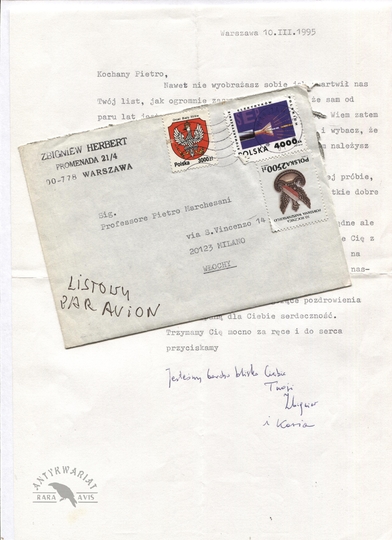 Warszawa 10.III.1995
Kochany Pietro,
Nawet nie wyobrażasz sobie jak zmartwił nas
Twój list, jak ogromnie że sam od
paru lat Wiem zatem
i wybacz, że
należysz
próbie,
dobre
ale
Cię z
na
nas-
pozdrowienia
dla Ciebie serdeczność.
Trzymamy Cię mocno za ręce i do serca
przyciskamy
Jesteśmy bardzo blisko Ciebie
Twoi
Zbigniew
i Kasia
ZBIGNIEW HERBERT
PROMENADA 21/4
00-778 WARSZAWA
Polska 3000 zł
POLSKA 4000 zł
POLSKA 2500 zł
Sig.
Professore Pietro Marchesani
via S.Vincenzo 14
20123 MILANO
WŁOCHY
LISTOWY
PAR AVION
ANTYKWARIAT
RARA AVIS